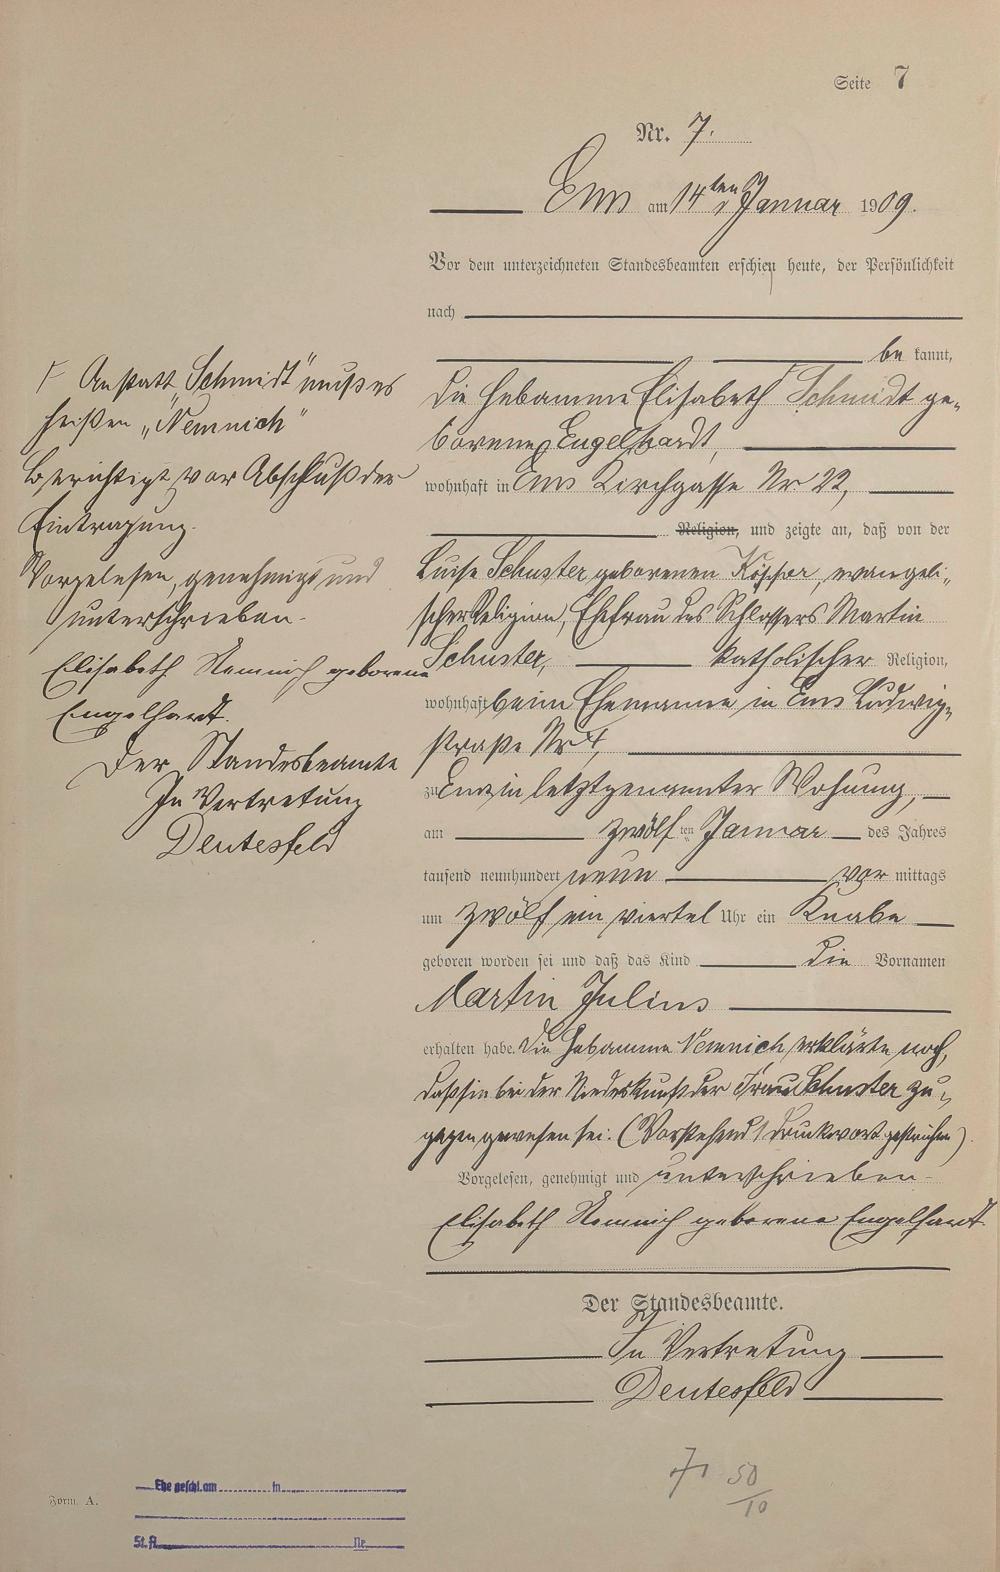 Seite 7
Nr. 7.
Ems am 14ten Januar 1909.
Vor dem unterzeichneten Standesbeamten erschien heute, der Persönlichkeit
nach
be kannt,
die Hebamme Elisabeth Schmidt ge-
borene Engelhardt,
wohnhaft in Ems Kirchgasse Nr 22,
Religion, und zeigte an, daß von der
Luise Schuster geborenen, evangeli-
scher Religion, Ehefrau des Schlossers Martin
Schuster, katholischer Religion,
wohnhaft beim Ehemanne in Ems Ludwig-
straße Nr 4,
zu Ems in letztgenannter Wohnung,
am zwölf ten Januar des Jahres
tausend neunhundert neun vor mittags
um zwölf ein viertel Uhr ein Knabe
geboren worden sei und daß das Kind die Vornamen
Martin Julius
erhalten habe. Die Hebamme Nemnich erklärte noch,
daß sie bei der Niederkunft der Frau Schuster zu-
gegen gewesen sei. (Vorstehend 1 Druckwort gestrichen)
Vorgelesen, genehmigt und unterschrieben
Elisabeth Nemnich geborene Engelhardt
Der Standesbeamte.
In Vertretung
Deutesfeld
Anstatt „Schmidt" muß es
heißen „Nemnich"
Berichtigt vor Abschluß der
Eintragung.
Vorgelesen, genehmigt und
unterschrieben.
Elisabeth Nemnich geborene
Engelhardt.
Der Standesbeamte
In Vertretung
Deutesfeld
50
10
Ehe geschl. am in
St. A. Nr.
Form. A.